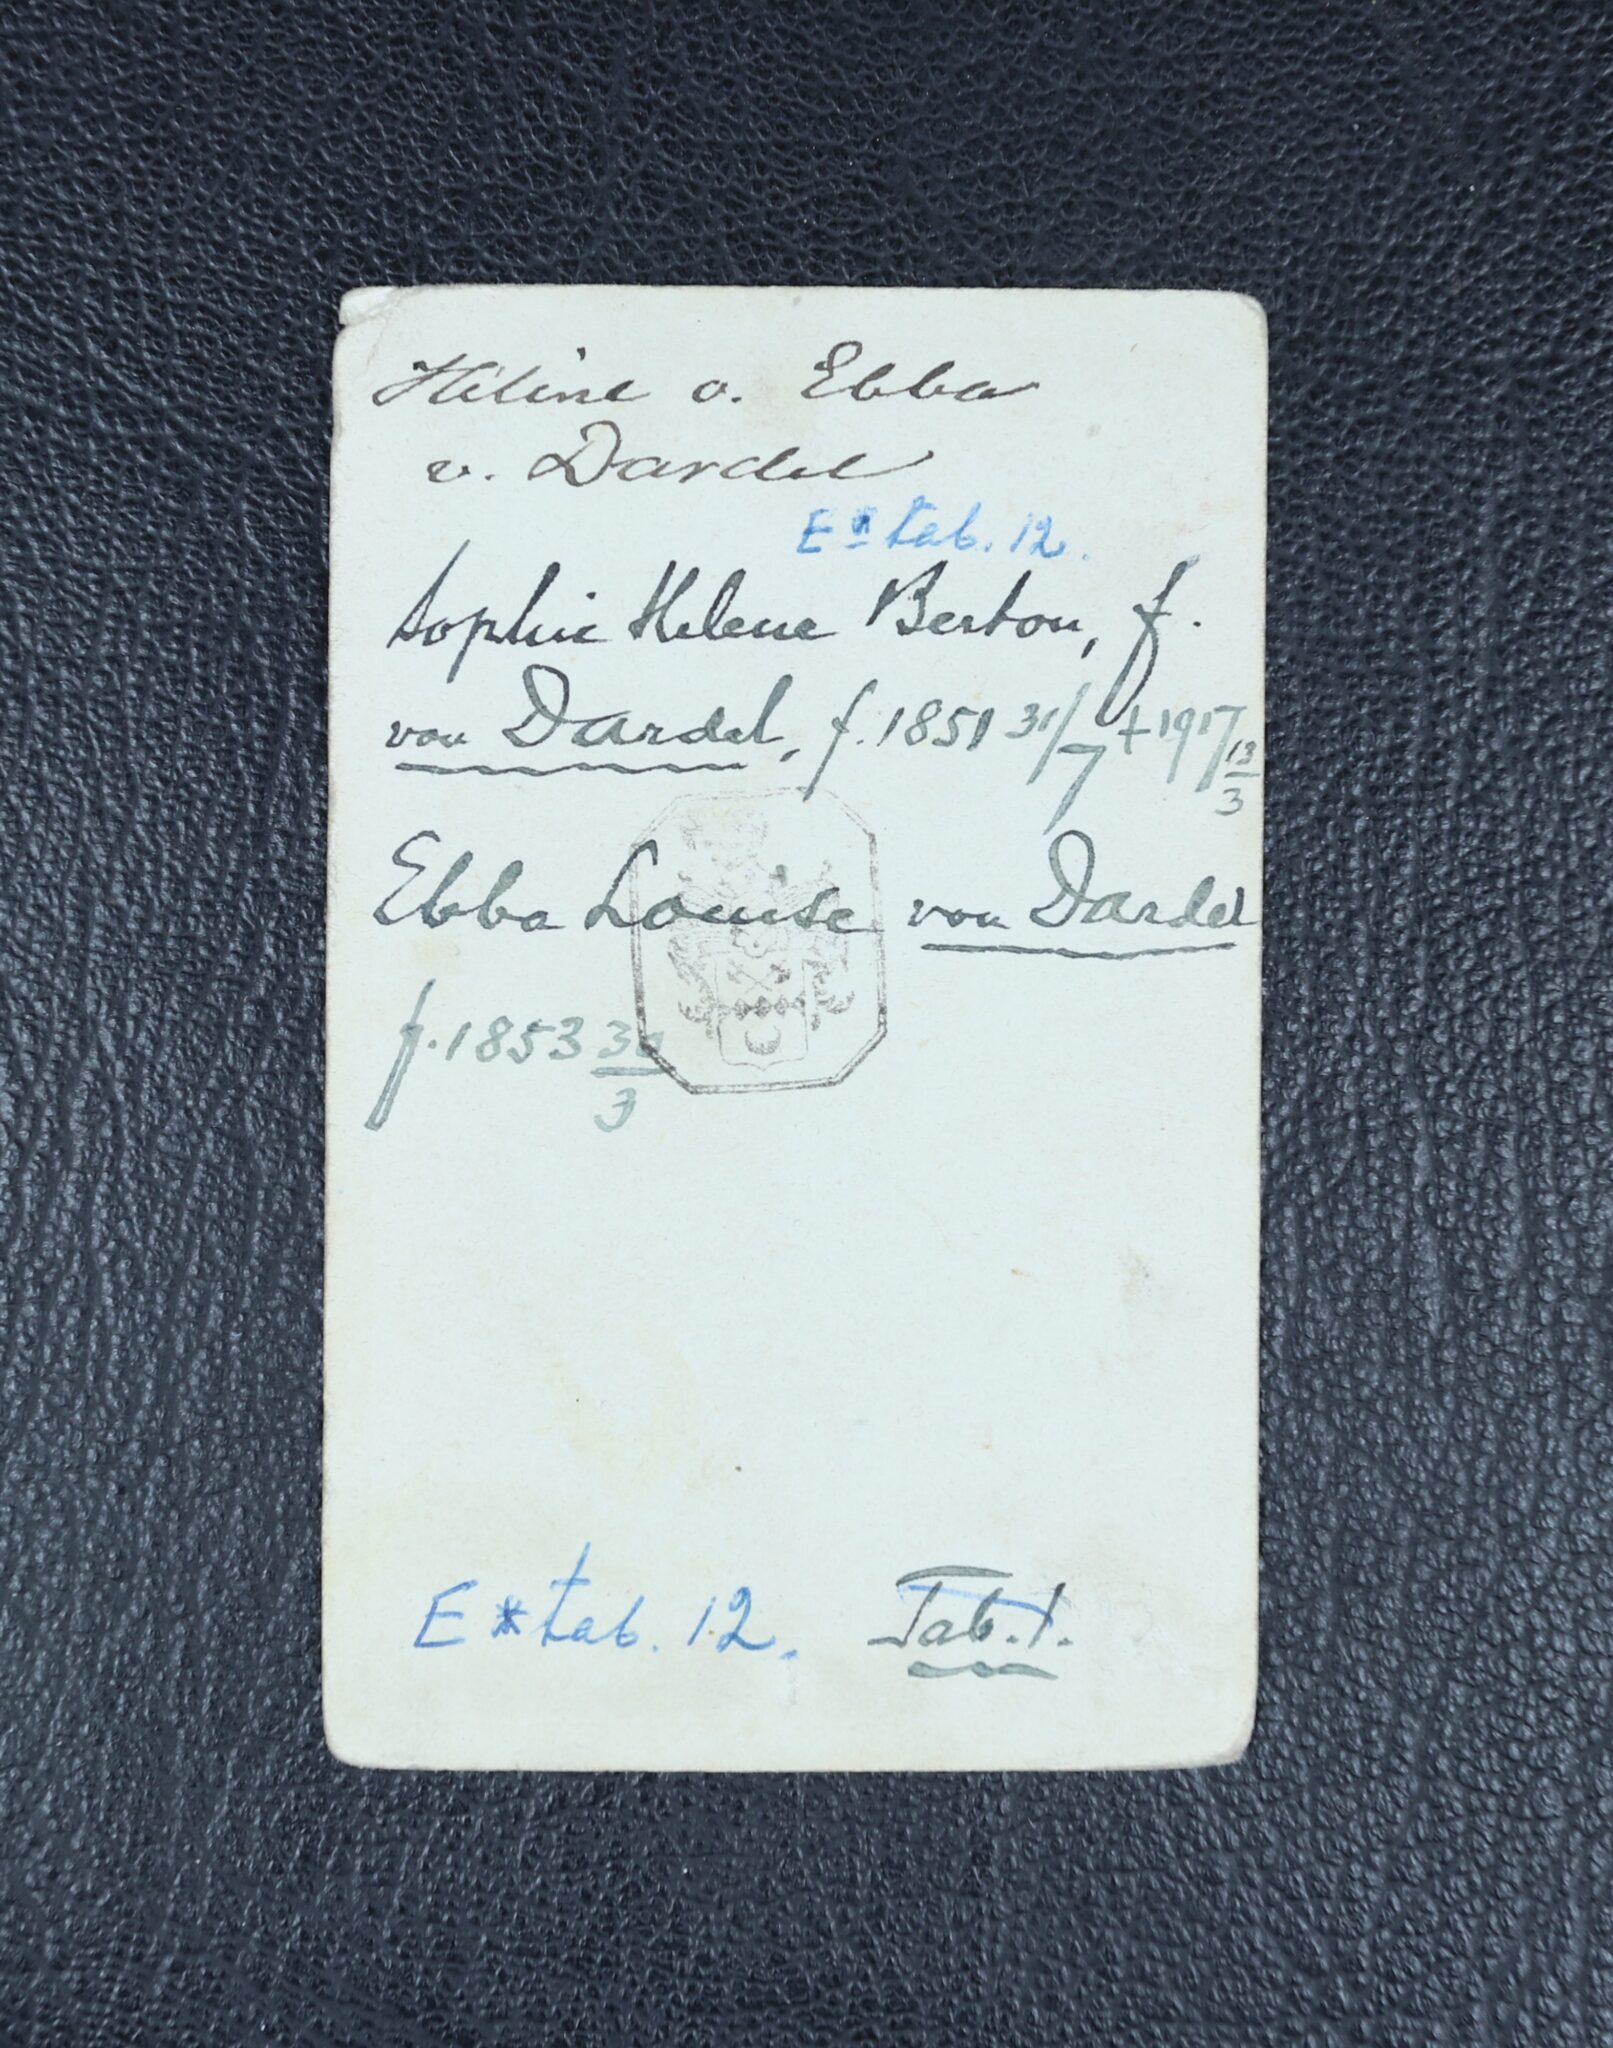 Hélène o. Ebba
v. Dardel
E* tab. 12.
Sophie Helene Berton, f.
von Dardel, f. 1851 31/7 + 1917 13/3
Ebba Louise von Dardel
f. 1853 30/3
E * tab. 12. Tab. 1.